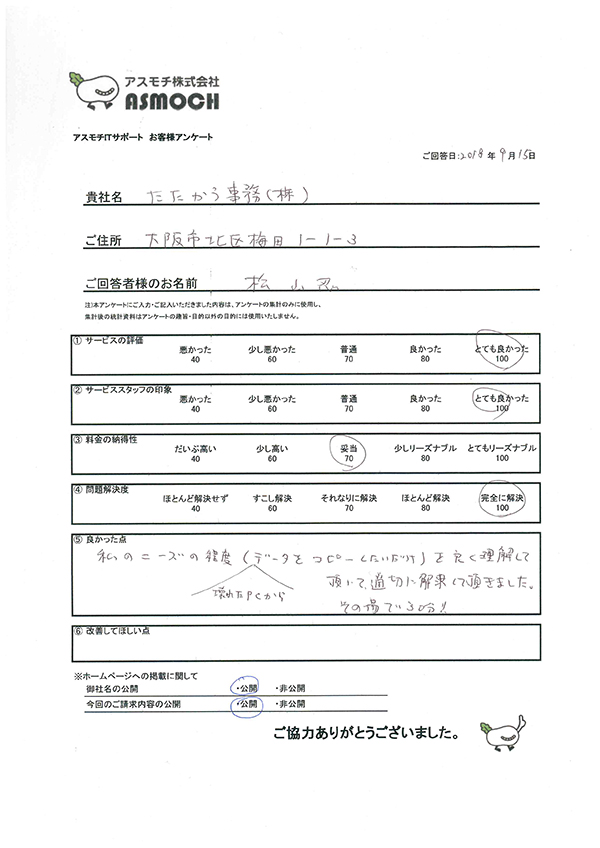 アスモチ株式会社
ASMOCH
アスモチITサポート お客様アンケート
ご回答日:2018年9月15日
貴社名 たたかう事務(株)
ご住所 大阪市北区梅田1-1-3
ご回答者様のお名前 松山
注)本アンケートにご入力・ご記入いただきました内容は、アンケートの集計のみに使用し、
集計後の統計資料はアンケートの趣旨・目的以外の目的には使用いたしません。
① サービスの評価
悪かった 少し悪かった 普通 良かった とても良かった
40 60 70 80 100
② サービススタッフの印象
悪かった 少し悪かった 普通 良かった とても良かった
40 60 70 80 100
③ 料金の納得性
だいぶ高い 少し高い 妥当 少しリーズナブル とてもリーズナブル
40 60 70 80 100
④ 問題解決度
ほとんど解決せず すこし解決 それなりに解決 ほとんど解決 完全に解決
40 60 70 80 100
⑤ 良かった点
私のニーズの程度(データをコピーしたいだけ)を良く理解して
壊れたPCから
頂いて、適切に解決して頂きました。
その場で30分!!
⑥ 改善してほしい点
※ホームページへの掲載に関して
御社名の公開 ・公開 ・非公開
今回のご請求内容の公開 ・公開 ・非公開
ご協力ありがとうございました。